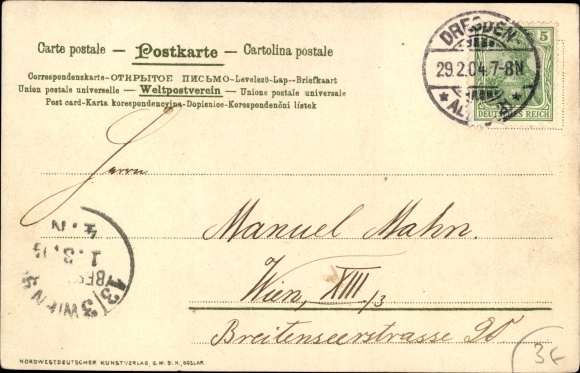 Carte postale — Postkarte — Cartolina postale
Correspondenskarte-ОТКРЫТОЕ ПИСЬМО-Levelező-Lap--Briefkaart
Union postale universelle — Weltpostverein — Unione postale universale
Post card-Karta korespondencyjna-Dopisnice-Korespondenční listek
DRESDEN
29.2.04.7-8N
* AL
*
5
DEUTSCHES REICH
Herrn
Manuel Mahn.
Wien, XIII/3
Breitenseerstrasse 90
13/3 WIEN
BES
1.3.04
4.N
3€
NORDWESTDEUTSCHER KUNSTVERLAG, G.M.B.H., GOSLAR.